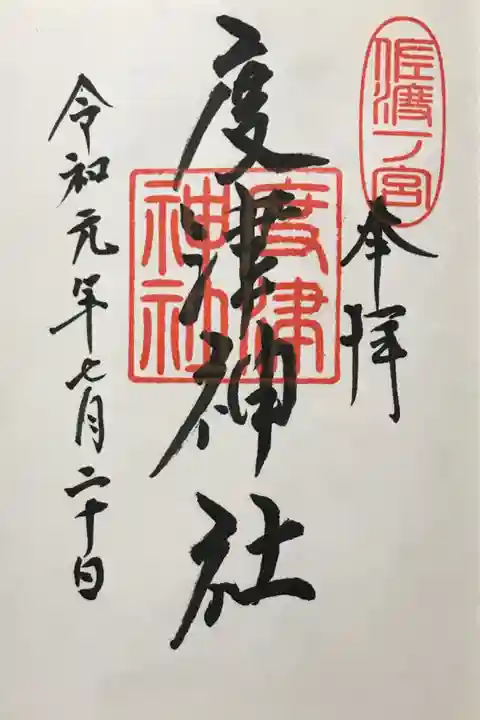 佐渡一ノ宮
奉拝
度津神社
度津
神社
令和元年七月二十日